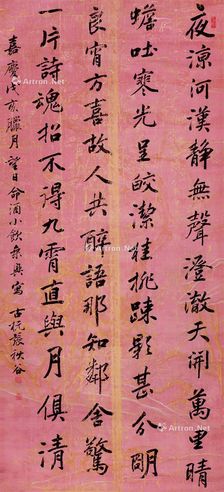 夜涼河漢靜無聲澄澈天開萬里晴
蟾吐寒光呈皎潔桂挑踈影甚分明
良宵方喜故人共醉語那知鄰舍驚
一片詩魂招不得九霄直與月俱清
嘉慶戊亥臘月望日命酒小飲乘興寫 古杭
Artron.Net